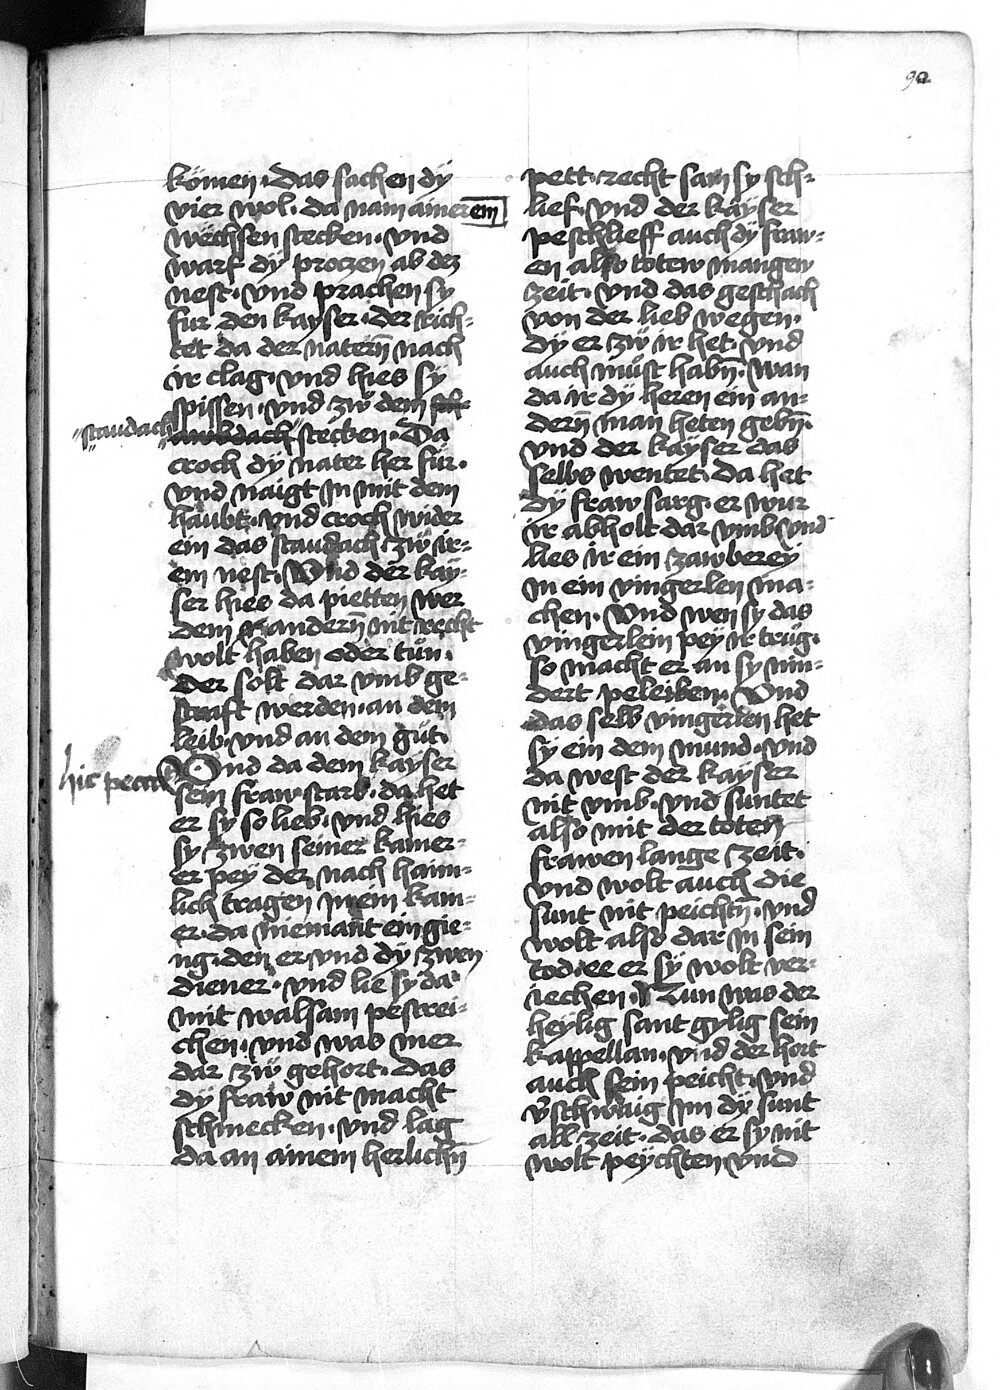 92
kömen. Das sachen dÿ
vier wol. da nam ainer ein
wechsen stecken. vnd
warf dÿ proczen ab dez
nest. vnd prachen sy
fur den kayser. der rich=
tet da der natern̄ nach
ir clag. vnd hies sÿ
spissen. vnd zw̆ dem
staudach stecken. Da
croch dÿ nater her für.
vnd naigt in mit dem
haubt. vnd croch wider
ein das staudach zw̆ ir=
em nest. Vnd der kay=
ser hies da pietten wer
dem andern̄ nit recht
wolt haben oder tün.
Der solt dar vmb ge=
straft werden. an dem
leib. vnd an dem gut.
hic
Vnd da dem kayser
sein fraw starb. da het
er sy so lieb. vnd hies
sy zwen seiner kamer=
er pey der nach haim=
lich tragen in ein kam=
er. da niemant ein gie=
ng. den er. vnd dÿ zwen
diener. vnd lie sy da
mit walsam pestrei=
chen. vnd was mer
dar zw̆ gehort. Das
dÿ fraw nit macht
schmecken. vnd lag
da an ainem herlichn̄
pett. recht sam sy sch=
lief. vnd der kayser
peschlieff auch dÿ fraw=
en also totew mangew
zeit. vnd das geschach
von der lieb wegen.
dÿ er zw̆ ir het. vnd
auch müst habn̄. wan
da ir dÿ heren ein an=
dern̄ man heten gebn̄.
vnd der kayser das
selbs wentet. da het
dÿ fraw sarg. er wur
ir abholt dar vmb vnd
lies ir ein zawberey
in ein vingerlen ma=
chen. Vnd wen sy das
vingerlein pey ir trüg.
so macht er an sy nin=
dert peleiben. Vnd
das selb vingerlen het
sy ein dem mund. vnd
da west der kayser
nit vmb. vnd suntet
also mit der toten
frawen lange zeit.
vnd wolt auch die
sunt nit peichtn̄. vnd
wolt also dar in sein
tod. ee er sy wolt ver=
iechen. Nun was der
heylig sant gylig sein
kappellan. vnd der hort
auch sein peicht. vnd
v̄schwaig im dÿ sunt
all zeit. das er sy nit
wolt peychten vnd